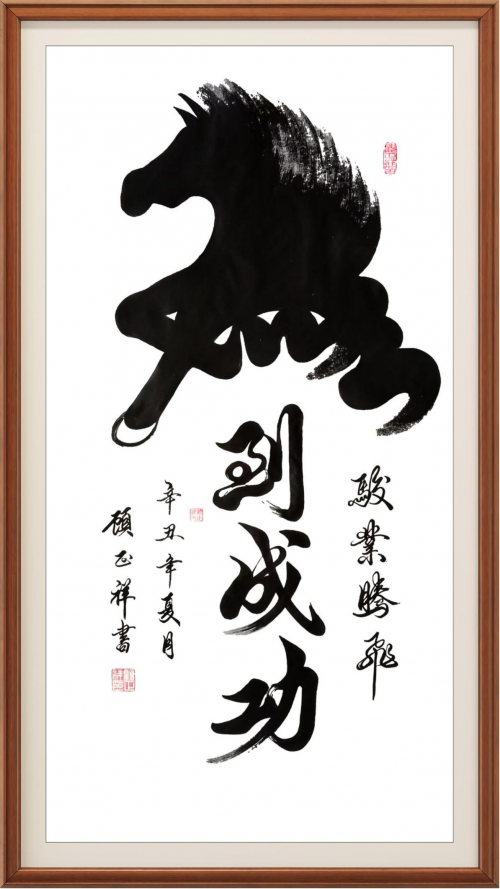 駿業騰飛
馬到成功
辛丑年夏月
顧正祥書